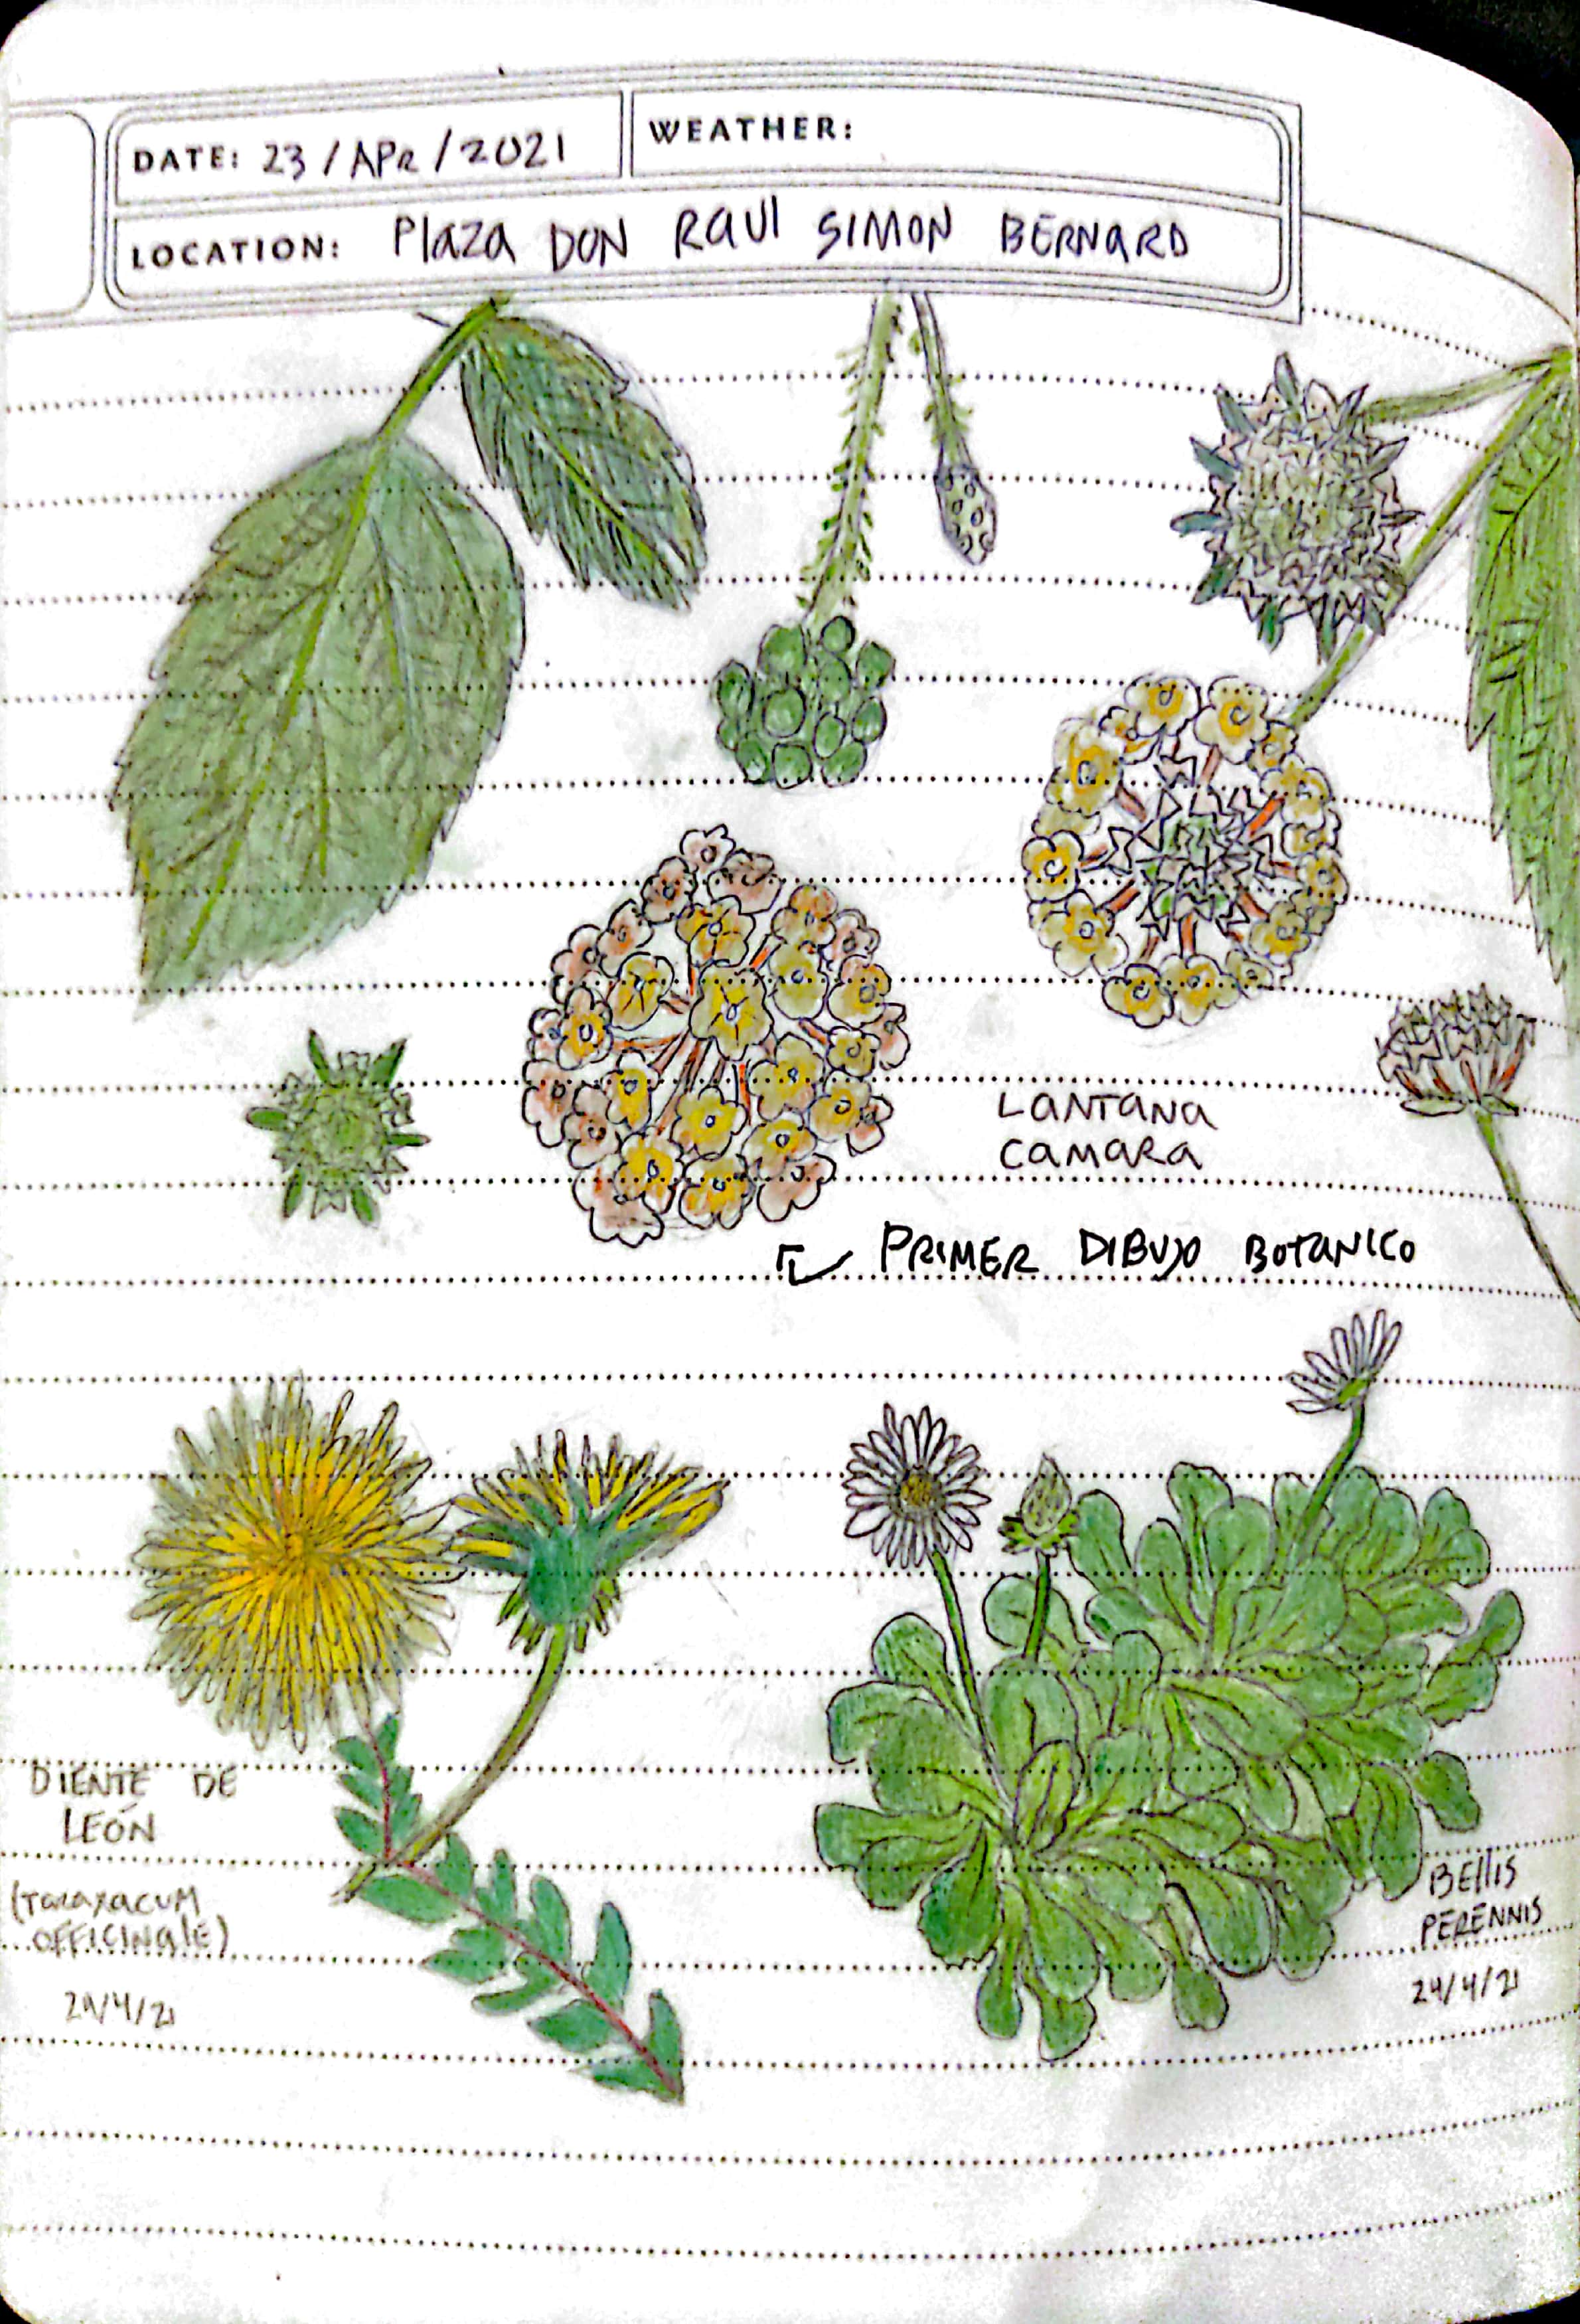 DATE: 23/APR/2021 WEATHER:
LOCATION: Plaza DON RAUl SIMON BERNARD
LANTANA
CAMARA
PRIMER DIBUJO BOTANICO
DIENTE DE
LEÓN
(TARAXACUM
OFFICINAlE)
24/4/21
BEllIS
PERENNIS
24/4/21